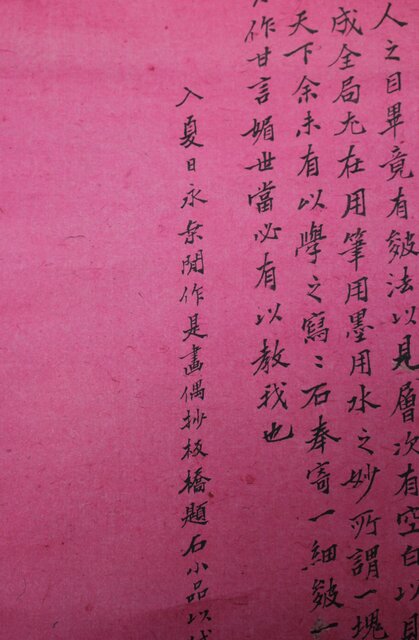 人之目畢竟有皴法以見層次有空白以見
成全局尤在用筆用墨用水之妙所謂一塊
天下余未有以學之寫〻石奉寄一細皴一
作甘言媚世當必有以教我也
入夏日永乘閒作是畫偶抄板橋題石小品以